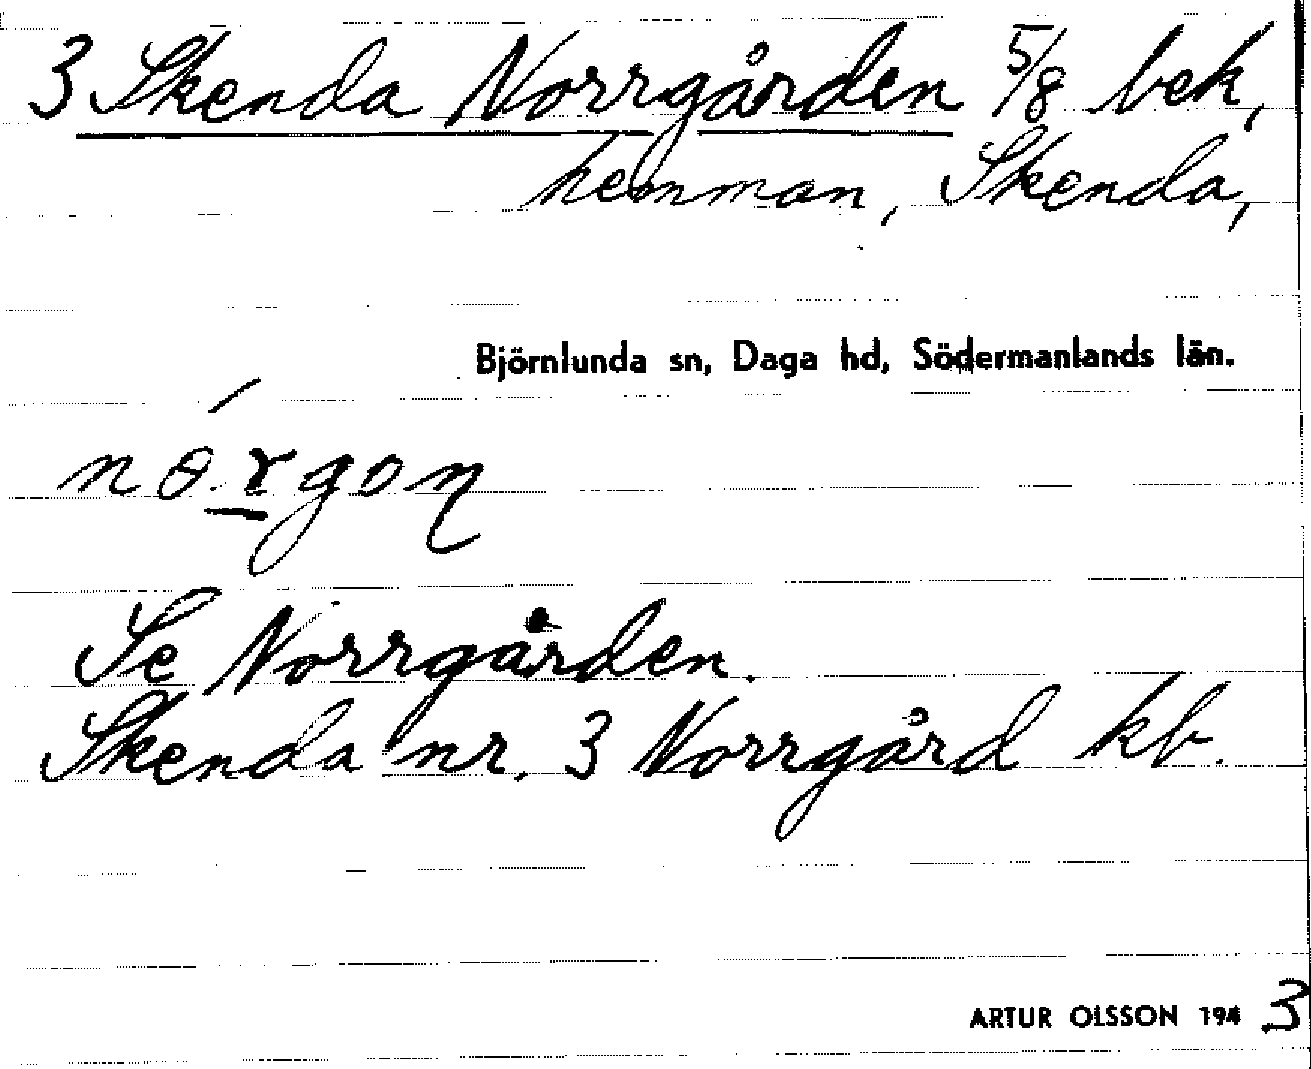 3 Skenda Norrgården 5/8 bek,
hemman, Skenda,
Björnlunda sn, Daga hd, Södermanlands län.
Se Norrgården.
Skenda nr. 3 Norrgård kb.
ARTUR OLSSON 1943